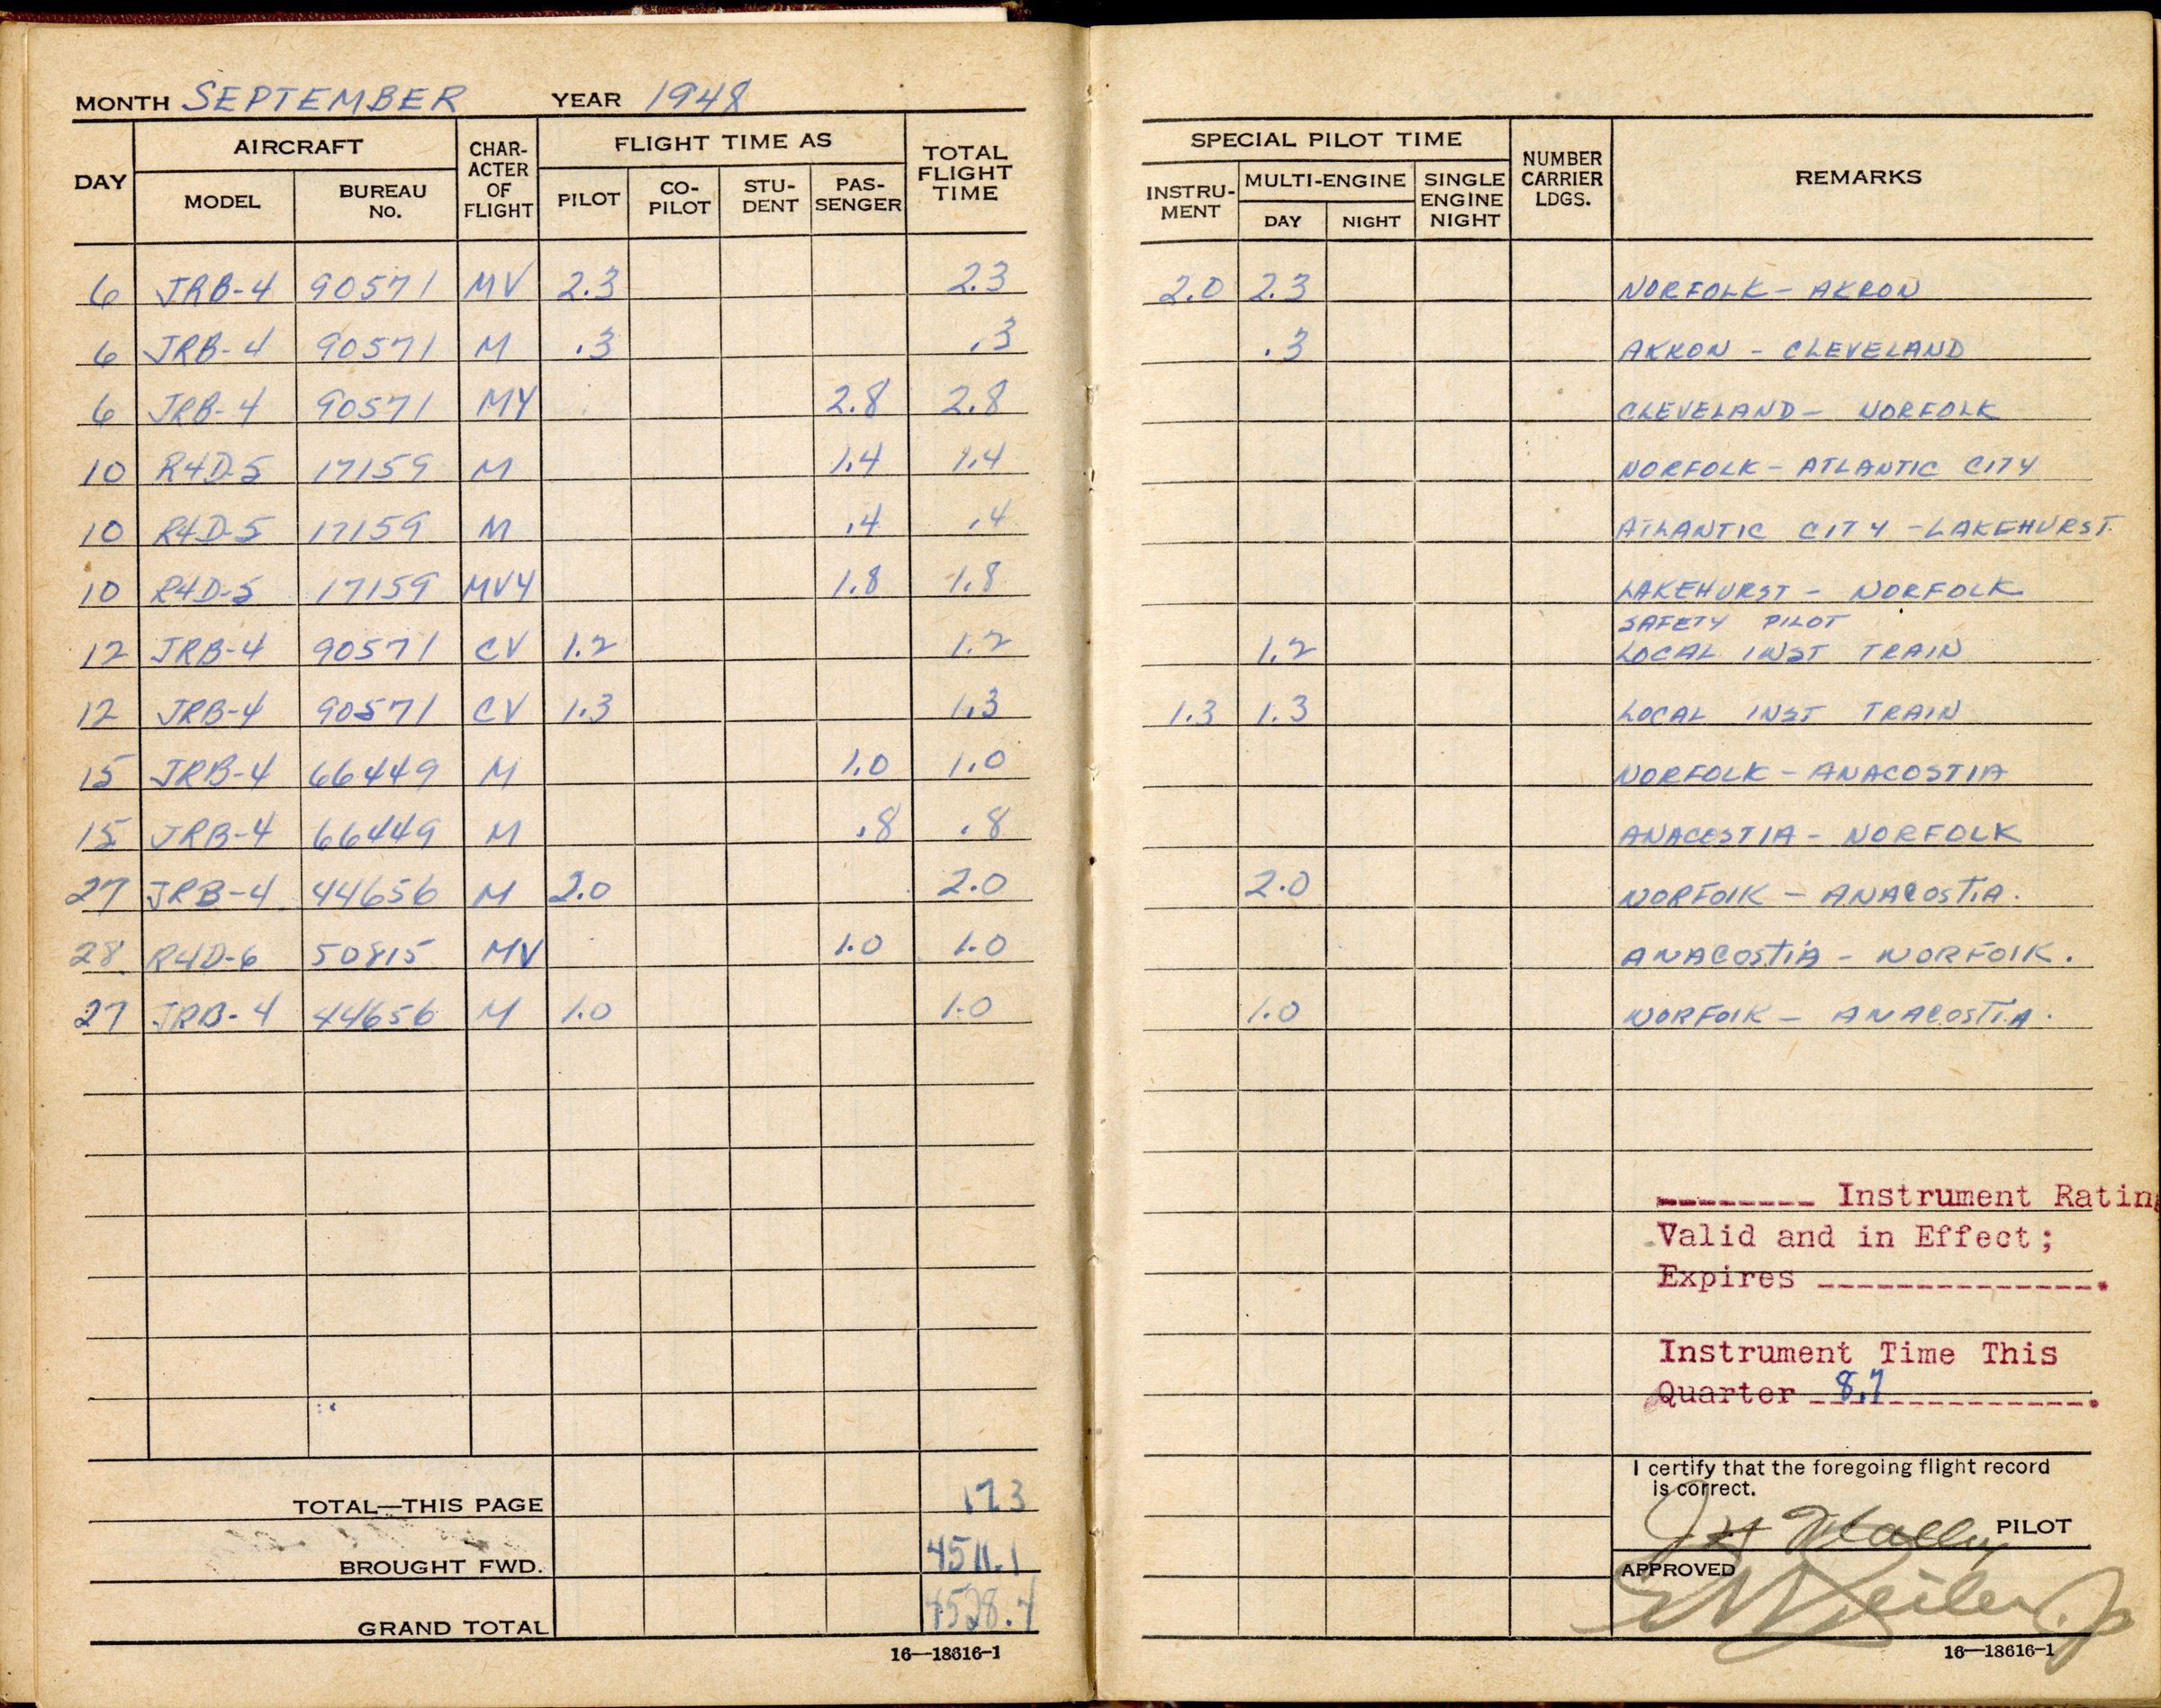 MONTH SEPTEMBER YEAR 1948
DAY AIRCRAFT CHAR-ACTER OF FLIGHT FLIGHT TIME AS TOTAL FLIGHT TIME
MODEL BUREAU No. PILOT CO-PILOT STU-DENT PAS-SENGER
6 JRB-4 90571 MV 2.3 2.3
6 JRB-4 90571 M .3 .3
6 JRB-4 90571 MY 2.8 2.8
10 R4D-5 17159 M 1.4 1.4
10 R4D-5 17159 M .4 .4
10 R4D-5 17159 MVY 1.8 1.8
12 JRB-4 90571 CV 1.2 1.2
12 JRB-4 90571 CV 1.3 1.3
15 JRB-4 66449 M 1.0 1.0
15 JRB-4 66449 M .8 .8
27 JRB-4 44656 M 2.0 2.0
28 R4D-6 50815 MV 1.0 1.0
27 JRB-4 44656 M 1.0 1.0
TOTAL—THIS PAGE 17.3
BROUGHT FWD. 4511.1
GRAND TOTAL 4528.4
16—18616-1
SPECIAL PILOT TIME NUMBER CARRIER LDGS. REMARKS
INSTRU-MENT MULTI-ENGINE SINGLE ENGINE NIGHT
DAY NIGHT
2.0 2.3 NORFOLK - AKRON
.3 AKRON - CLEVELAND
CLEVELAND - NORFOLK
NORFOLK - ATLANTIC CITY
ATLANTIC CITY - LAKEHURST
LAKEHURST - NORFOLK
SAFETY PILOT
1.2 LOCAL INST TRAIN
1.3 1.3 LOCAL INST TRAIN
NORFOLK - ANACOSTIA
ANACOSTIA - NORFOLK
2.0 NORFOLK - ANACOSTIA.
ANACOSTIA - NORFOLK.
1.0 NORFOLK - ANACOSTIA.
-------- Instrument Rating
Valid and in Effect;
Expires --------------.
Instrument Time This
Quarter 8.7 --------------.
I certify that the foregoing flight record
is correct.
PILOT
APPROVED
16—18616-1